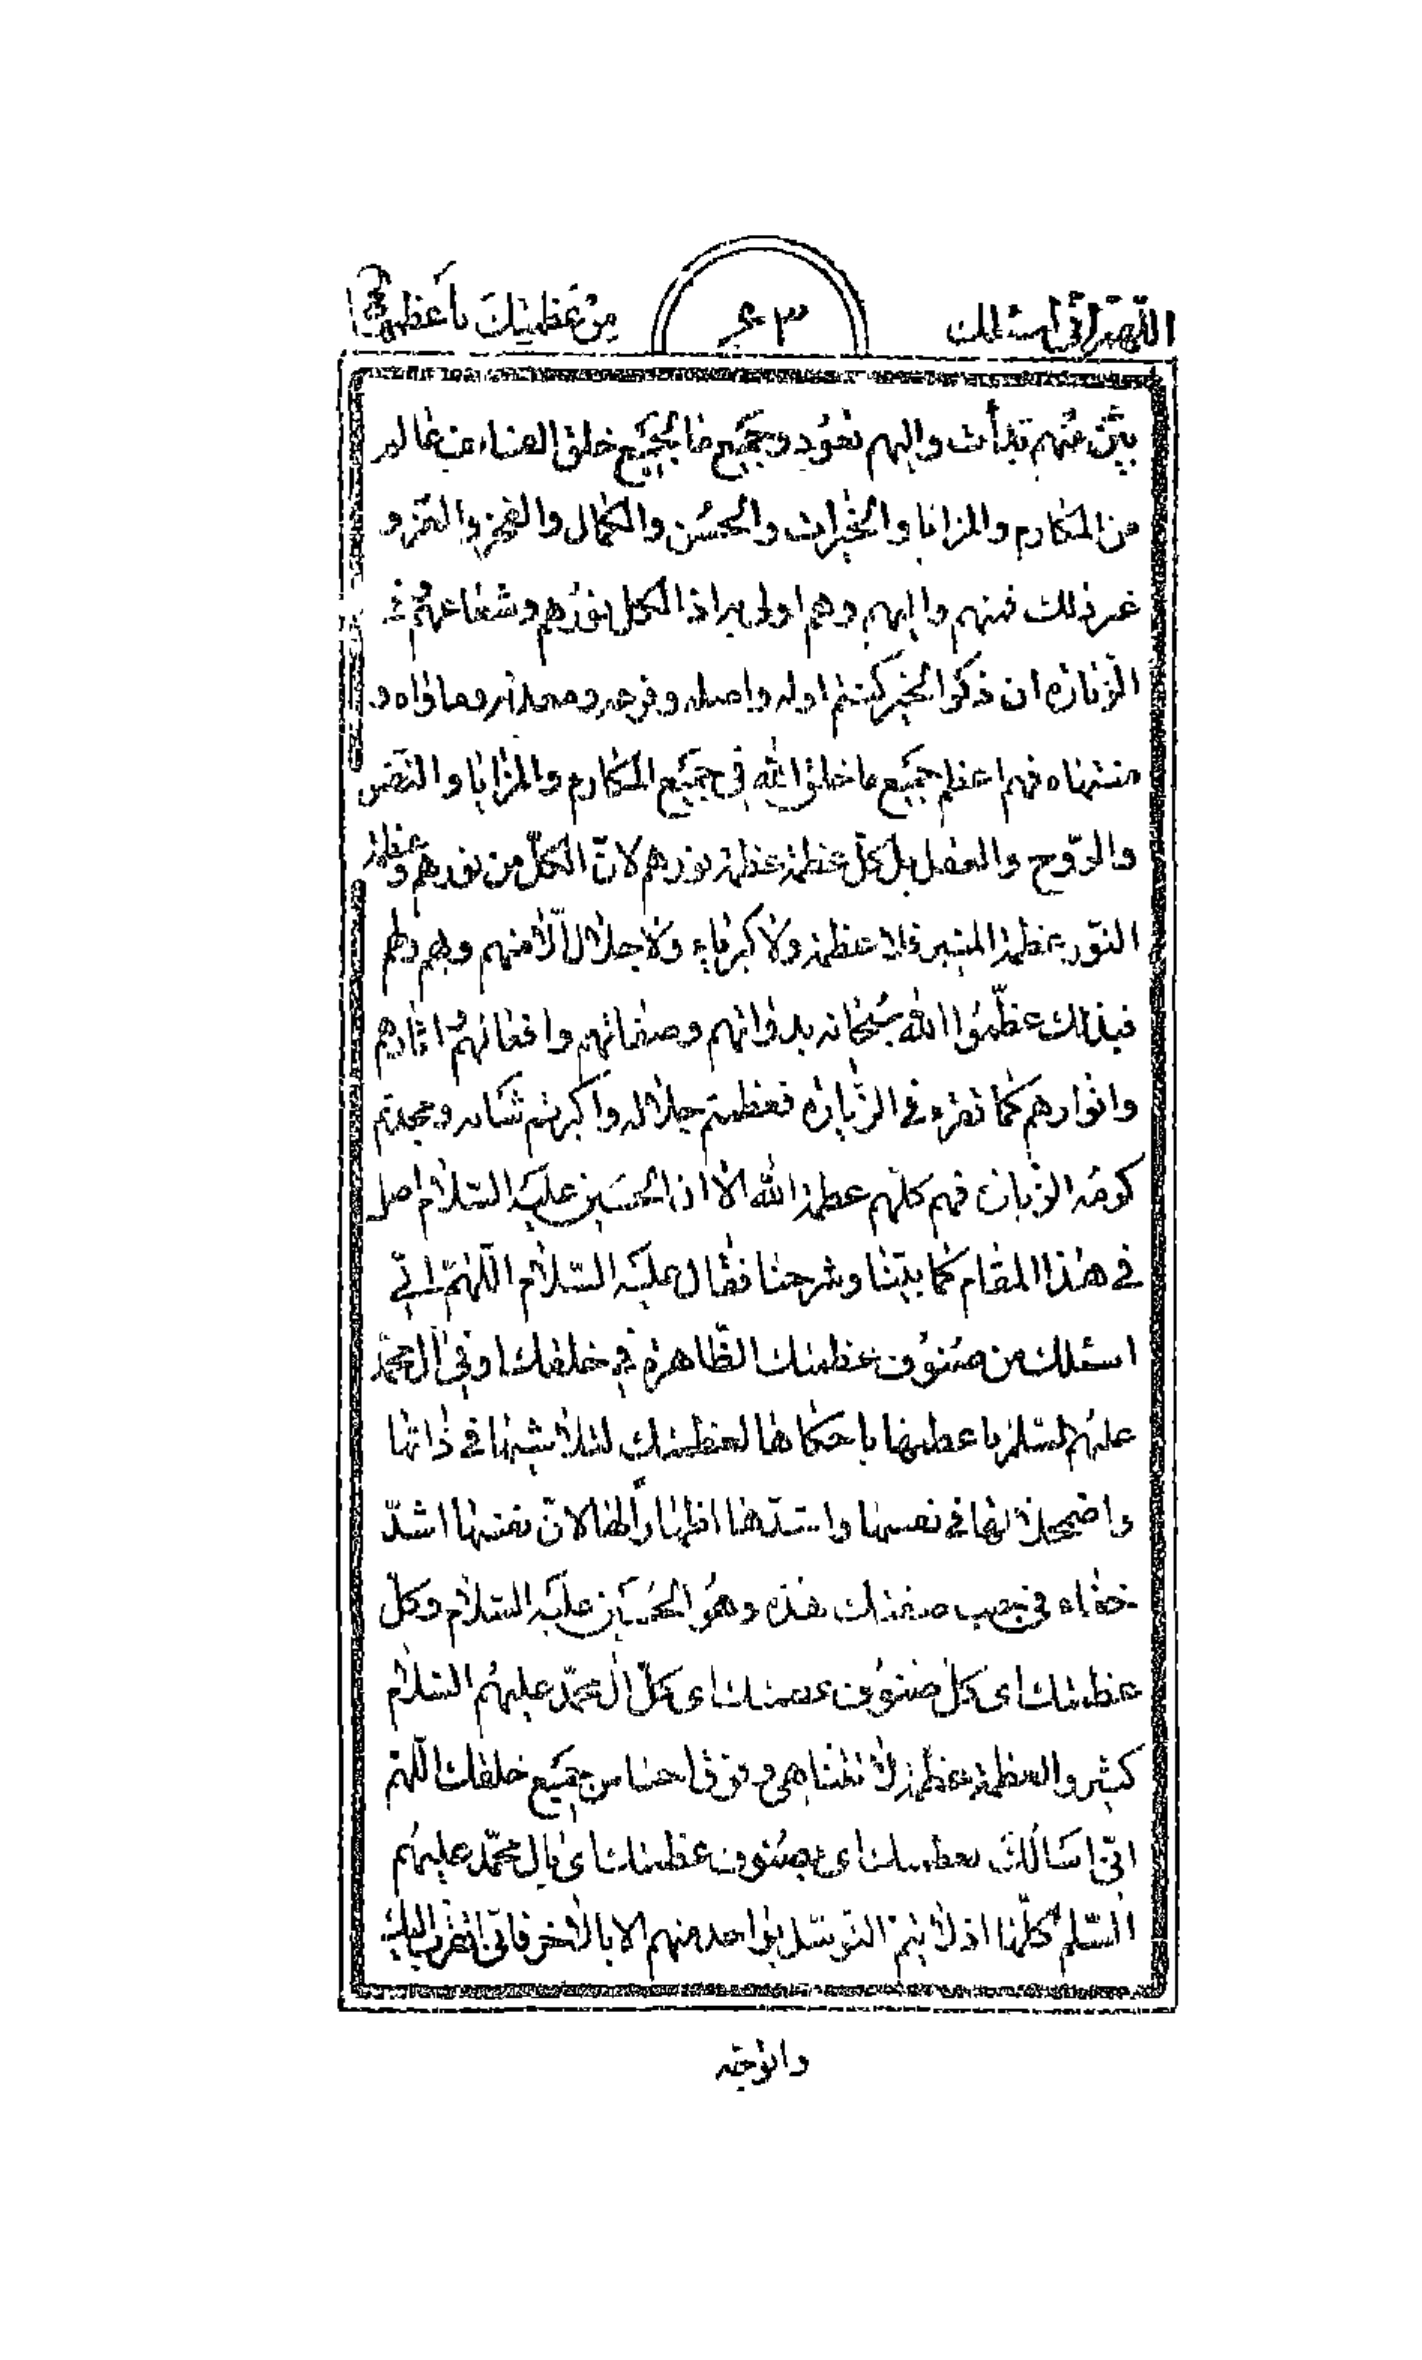 اللّهمّ انّی اسئلك
۶۳
مِنْ عَظَمَتِكَ بِاَعْظَمِهٰا
منهم بدأت واليهم تعود وجميع ما لجميع خلق الله من عالم
من المكارم والمزايا والخيرات والحسن والكمال والفخر والعز و
غير ذلك فمنهم واليهم وهم اولى به اذ الكل نورهم وشعاعهم فى
الزّيارة ان ذكر الخير كنتم اوله واصله وفرعه ومعدنه ومأواه و
منتهاه فهم اعظم جميع ما خلق الله فى جميع المكارم والمزايا
والرّوح والعقل بل كلّ عظمة عظمة نورهم لانّ الكلّ من نورهم وعظمة
النّور بعظمة المنير فلا عظمة ولا كبرياء ولا جلال الّا منهم وبهم ولهم
فبذلك عظّموا الله سبحانه بذواتهم وصفاتهم وافعالهم اثارهم
وانوارهم كما تقرء فى الزّيارة فعظمتم جلاله واكبرتم شانه ومجدتم
كرمه الزيارة فهم كلهم عظمة الله الا ان الحسين عليه السّلام اصل
فى هذا المقام كما بيّنا وشرحنا فقال عليه السّلام اللّهمّ انّى
اسئلك من صنوف عظمتك الظّاهرة فى خلقك وفى ال محمّد
عليهم السّلام باعظمها باحكاها لعظمتك لتلاشيها فى ذاتها
واضمحلالها فى نفسها واشدّها اظهاراً لها لانّ نفسها اشدّ
خفاء فى جنب صفتك هذه وهو الحسين عليه السّلام وكلّ
عظمتك اى كل صنوف عظمتك اى كلّ ال محمّد عليهم السّلام
كثير والعظمة عظمة لا تتناهى من جميع خلقك اللّهمّ
انّى اسَالُكَ بعظمتك اى بصنوف عظمتك اى بال محمّد عليهم
السّلم كلّها اذ لا يتم التوسّل بواحد منهم الا بالاخر فانى اتقرّب اليك
واتوجّه